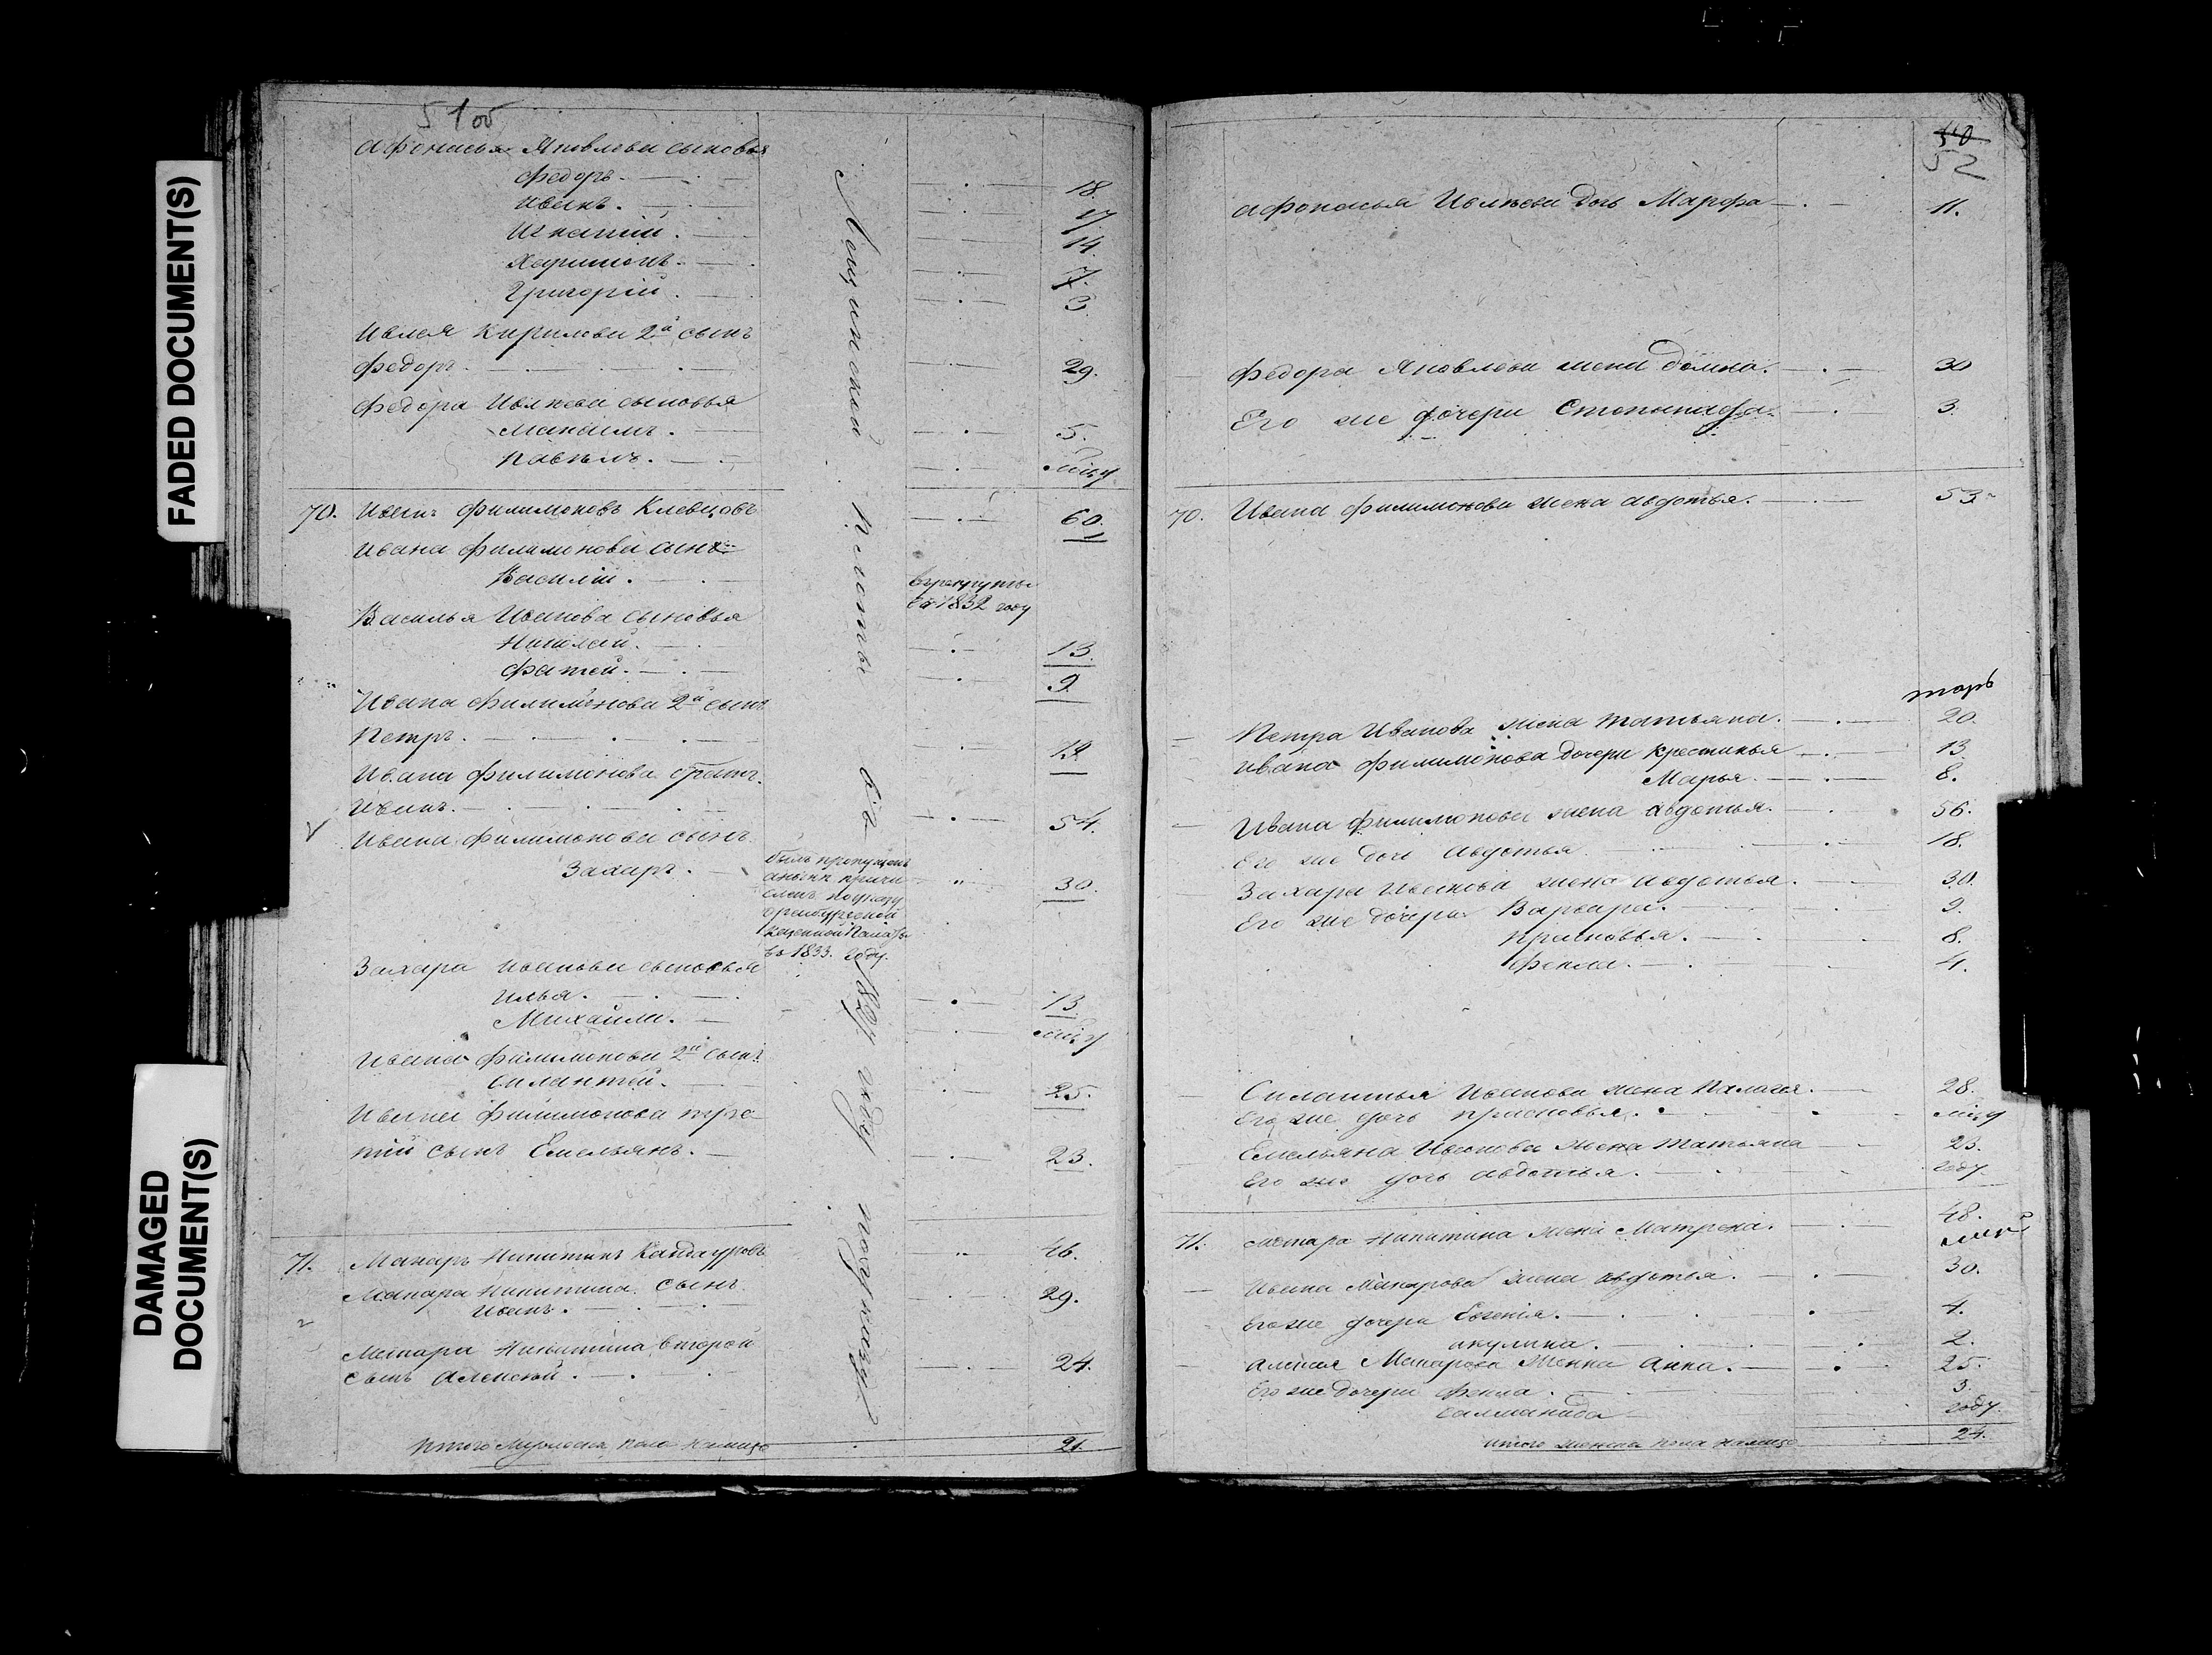 FADED DOCUMENT(S)
DAMAGED
DOCUMENT(S)
51об
Афонасья Яковлева сыновья
Федоръ. 18.
Иванъ. 17.
Игнатий. 14.
Харитонъ. 7.
Григорий. 3
Кирилова 2й сынъ
Федоръ. 29.
Федора сыновья
5.
70. Иванъ Филимоновъ Клевцовъ 60.
Ивана Филимонова сынъ
Василий.
въ рекруты
въ 1832 году
Василья Иванова сыновья
Николай. 13.
Фатей. 9.
Ивана Филимонова 2й сынъ
Петръ. 19
Ивана Филимонова братъ.
Иванъ. 54.
Ивана Филимонова сынъ
Захаръ. 30.
былъ пропущенъ
а ныне причи
сленъ по указу
Оренбургской
казенной палаты
въ 1833. году.
Захара Иванова сыновья
Илья. 13.
Михайла.
Ивана Филимонова 2й сынъ
Силантей. 25.
Ивана Филимонова тре
тий сынъ Емельянъ. 23.
71. Макаръ Никитинъ 46.
Макара Никитина сынъ
Иванъ. 29.
Макара Никитина второй
сынъ Алексей. 24.
Итого мужеска пола налицо 21.
въ 1827 году по указу
50
52
Афонасья дочь Марфа 11.
Федора Яковлева жена Домна. 30
Его же дочери 3.
70. Ивана Филимонова жена Авдотья. 53
Петра Иванова жена Татьяна. 20.
Ивана Филимонова дочери Крестинья 13
Марья. 8.
Ивана Филимонова жена Авдотья. 56.
Его же дочь Авдотья 18.
Захара Иванова жена Авдотья. 30.
Его же дочери Варвара. 9.
Прасковья. 8.
Фекла. 4.
Силантья Иванова жена Палагея. 28.
Его же дочь Прасковья.
Емельяна Иванова жена Татьяна 23.
Его же дочь Авдотья. году
71. Макара Никитина жена Матрена. 48.
Ивана Макарова жена Авдотья. 30.
Его же дочери Евгения. 4.
Акулина. 2.
Алексея Макарова жена Анна. 25.
Его же дочери Фекла. 3.
году
Итого женска пола налицо 24.